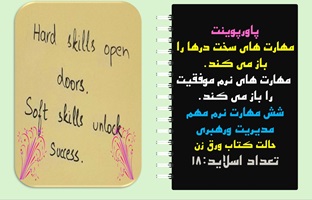 Hard skills open
doors.
Soft skills unlock
Success.
پاورپوینت
مهارت های سخت درها را
باز می کند.
مهارت های نرم موفقیت
را باز می کند.
شش مهارت نرم مهم
مدیریت ورهبری
حالت کتاب ورق زن
تعداد اسلاید:۱۸